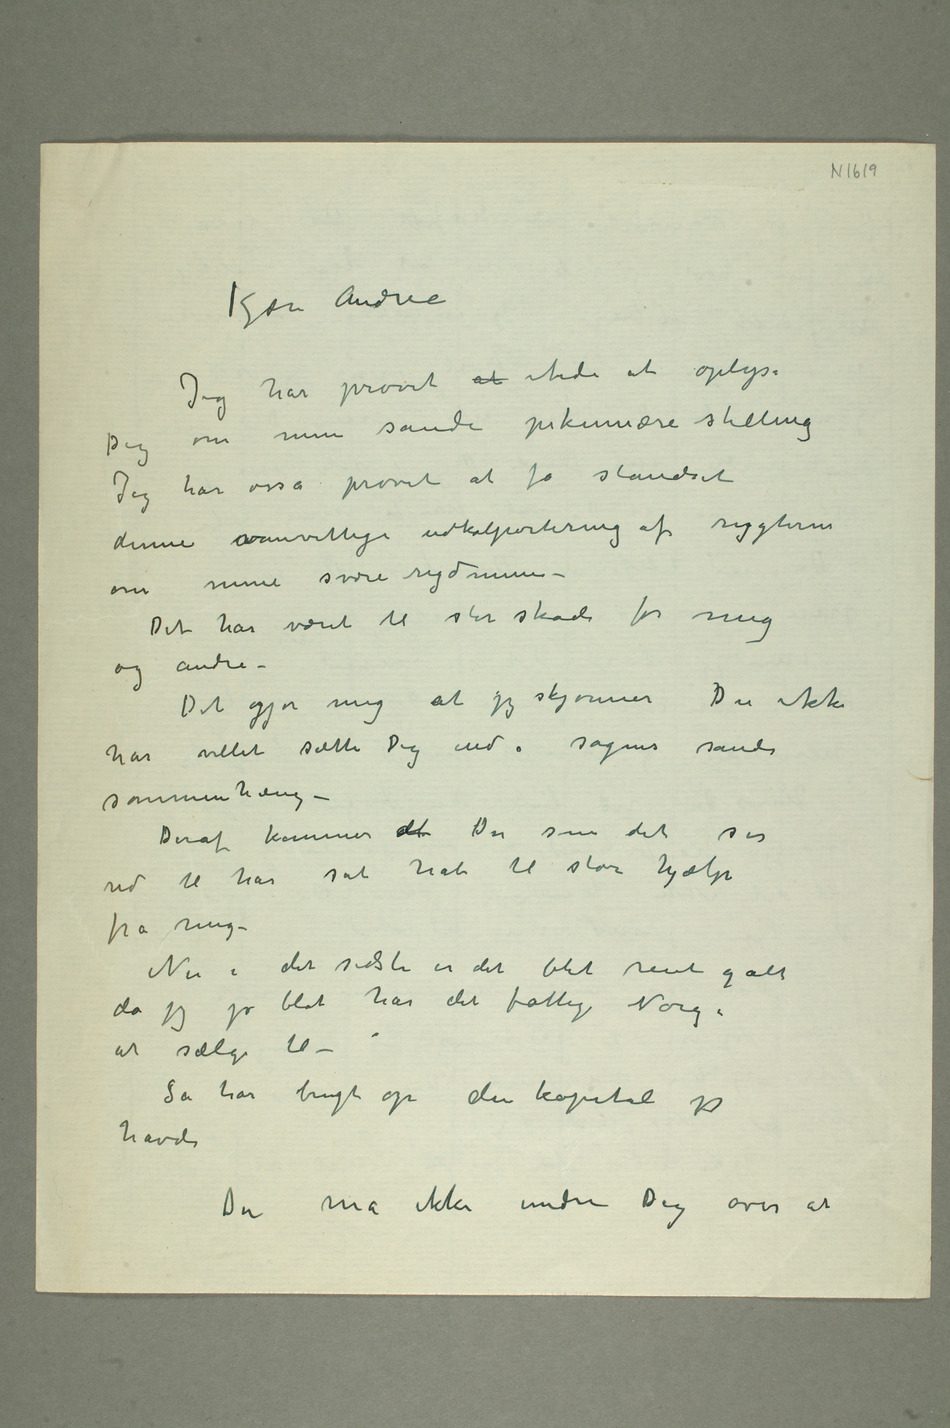 N 1619
Kjære Andrea
Jeg har prøvet at at oplyse
Dig om min sande pekuniære stilling
Jeg har osså prøvet at få standset
denne vanvittige udkolportering af rygterne
om mine svære rigdomme –
Det har været til stor skade for mig
og andre –
Det gjør mig at jeg skjønner Du ikke
har villet sætte Dig ind i sagens sande
sammenhæng –
Deraf kommer det Du som det ses
ud til har sat håb til stor hjælp
fra mig –
Nu i det sidste er det blit rent galt
da jeg jo blot har det fattige Norge
at sælge til –
Så har brugt op den kapital jeg
havde
Du må ikke undre Dig over at